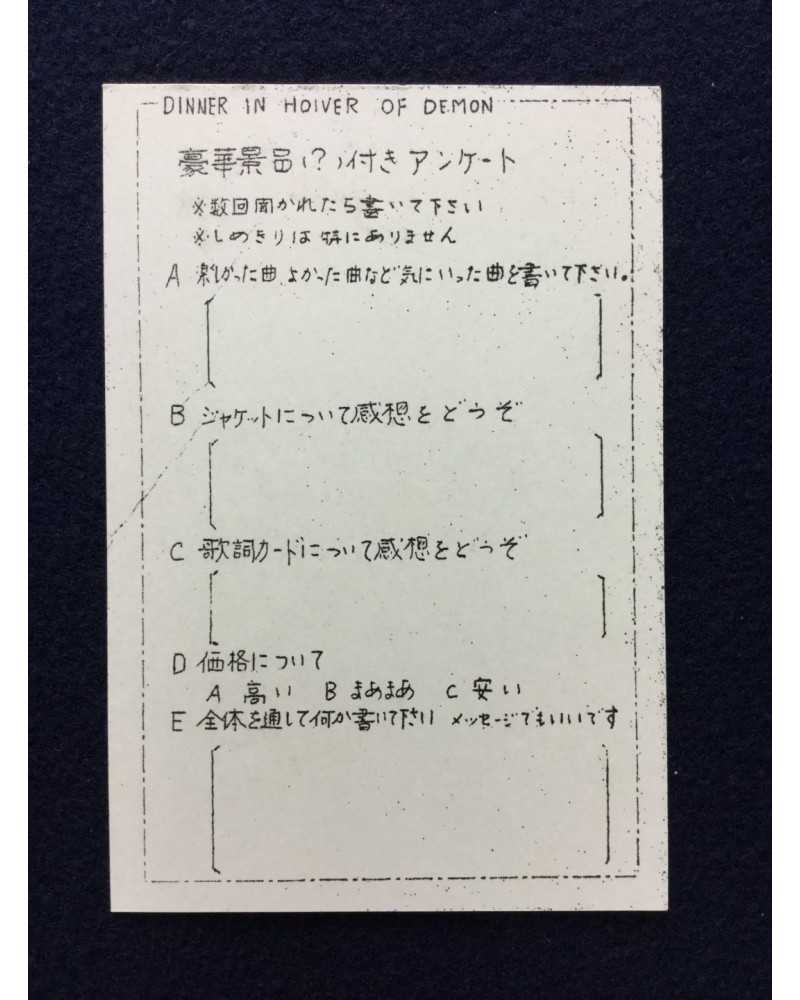 DINNER IN HOIVER OF DEMON
豪華景品(?)付きアンケート
※数回聞かれたら書いて下さい
※しめきりは特にありません
A 楽しかった曲、よかった曲など気にいった曲を書いて下さい。
B ジャケットについて感想をどうぞ
C 歌詞カードについて感想をどうぞ
D 価格について
A 高い B まあまあ C 安い
E 全体を通して何か書いて下さい メッセージでもいいです